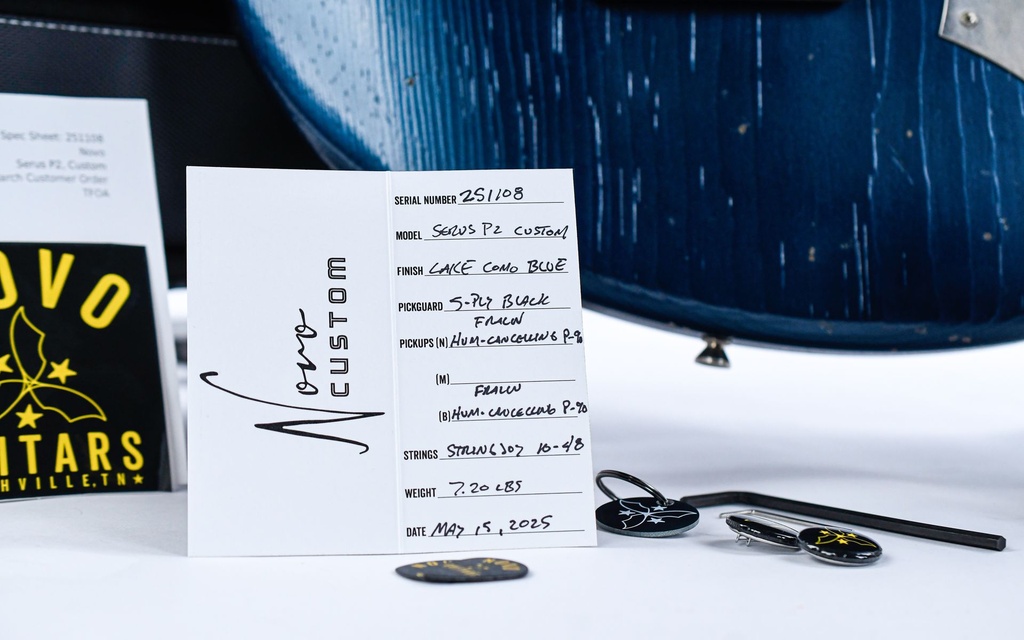 Spec Sheet: 251108
Novo
Serus P2, Custom
arch Customer Order
TFOA
OVO
ITARS
HVILLE, TN
Novo
CUSTOM
SERIAL NUMBER 251108
MODEL SERUS P2 CUSTOM
FINISH LAKE COMO BLUE
PICKGUARD 5-PLY BLACK
FRALIN
PICKUPS (N) HUM-CANCELLING P-90
(M)
FRALIN
(B) HUM-CANCELLING P-90
STRINGS STRINGJOY 10-48
WEIGHT 7.20 LBS
DATE MAY 15, 2025